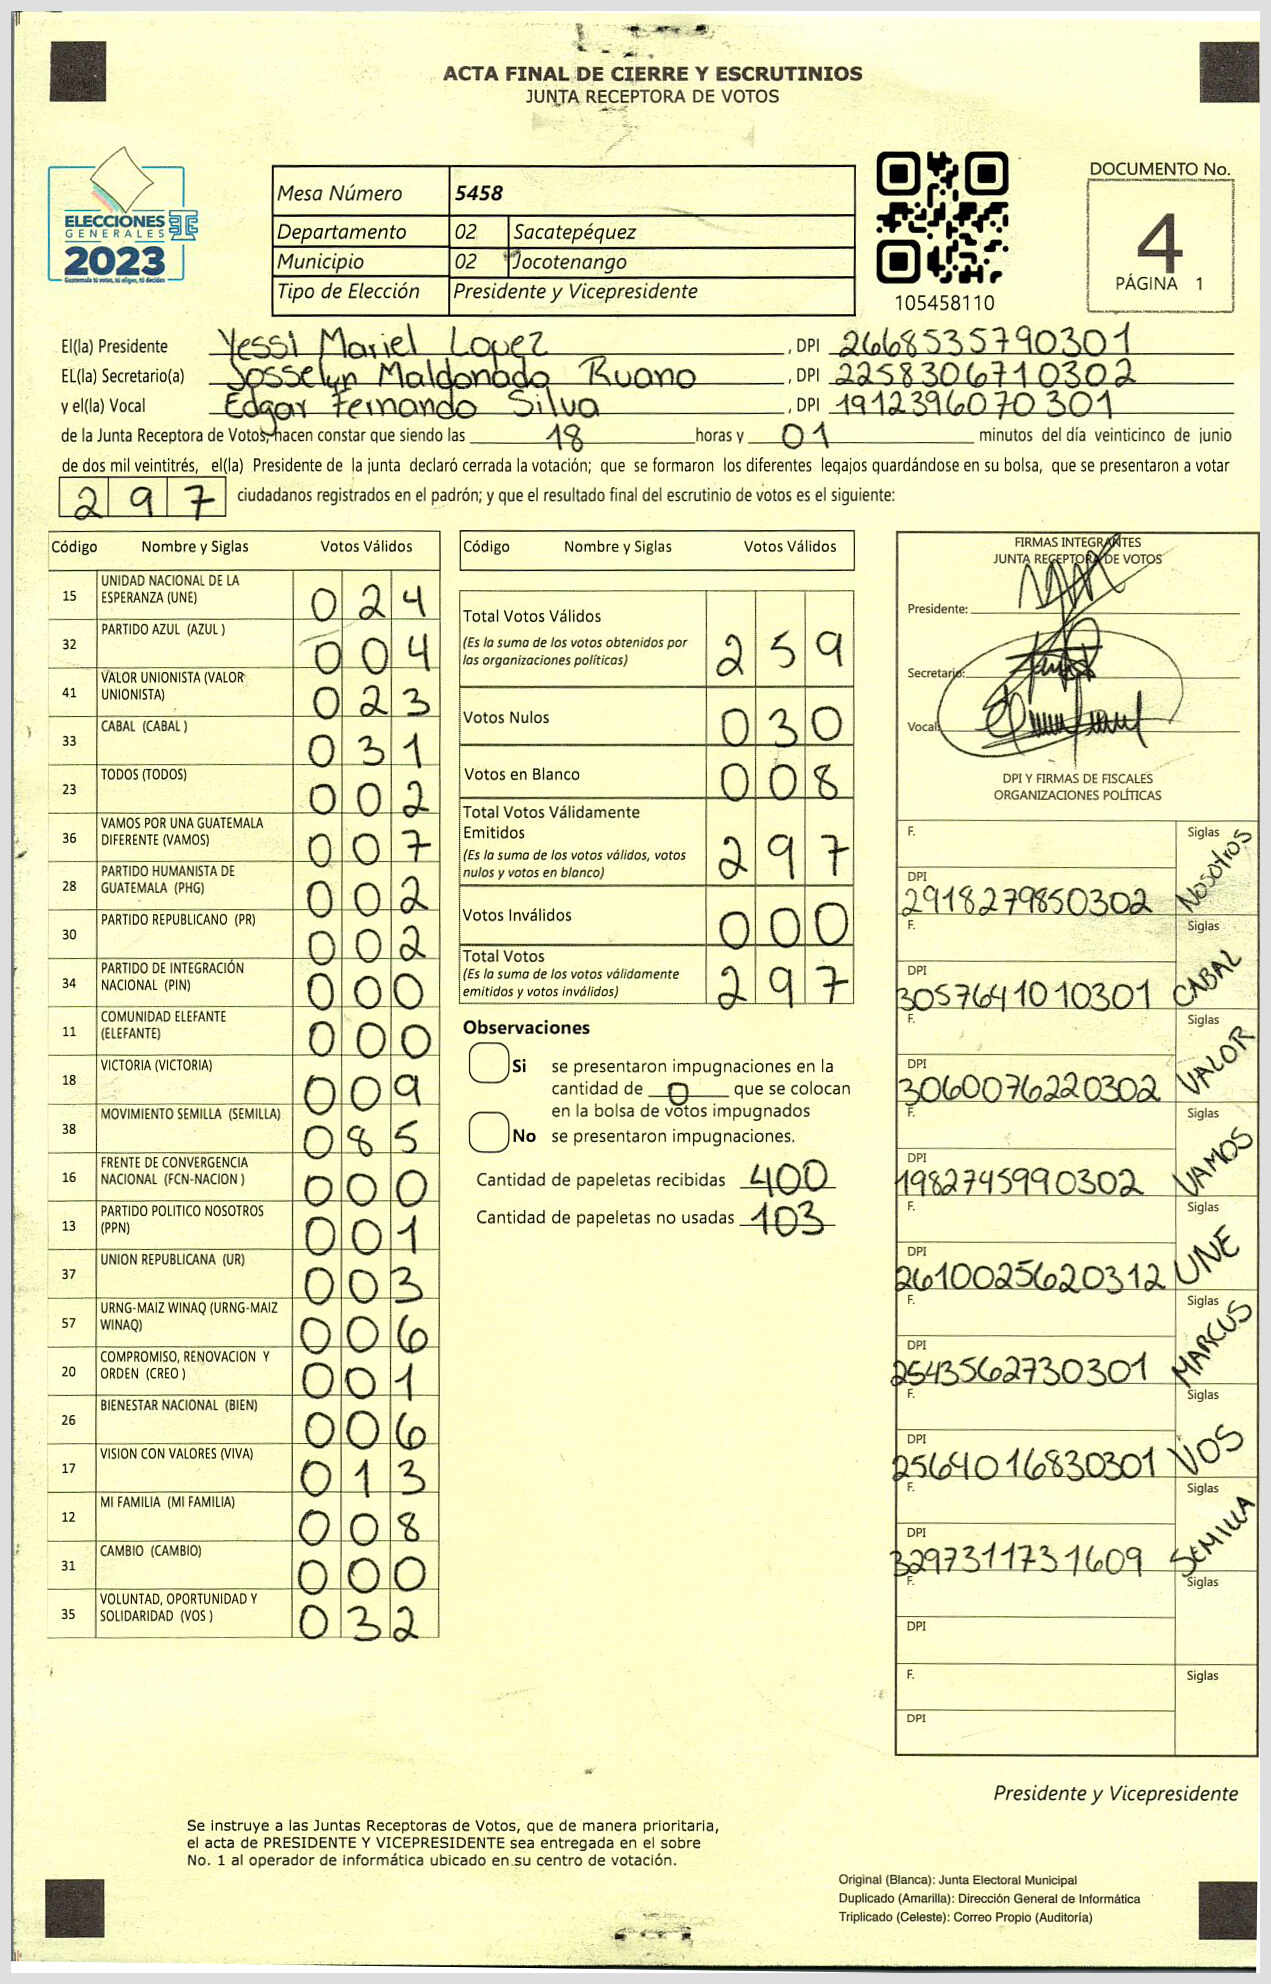 ACTA FINAL DE CIERRE Y ESCRUTINIOS
JUNTA RECEPTORA DE VOTOS
ELECCIONES
GENERALES
2023
Guatemala tú votas, tú eliges, tú decides
Mesa Número 5458
Departamento 02 Sacatepéquez
Municipio 02 Jocotenango
Tipo de Elección Presidente y Vicepresidente
105458110
DOCUMENTO No.
4
PÁGINA 1
El(la) Presidente Yessi Mariel Lopez , DPI 2668535790301
EL(la) Secretario(a) Josselyn Maldonado Ruano , DPI 2258306710302
y el(la) Vocal Edgar Fernando Silva , DPI 1912396070301
de la Junta Receptora de Votos, hacen constar que siendo las 18 horas y 01 minutos del día veinticinco de junio
de dos mil veintitrés, el(la) Presidente de la junta declaró cerrada la votación; que se formaron los diferentes legajos guardándose en su bolsa, que se presentaron a votar
297 ciudadanos registrados en el padrón; y que el resultado final del escrutinio de votos es el siguiente:
Código Nombre y Siglas Votos Válidos
15 UNIDAD NACIONAL DE LA ESPERANZA (UNE) 024
32 PARTIDO AZUL (AZUL ) 004
41 VALOR UNIONISTA (VALOR UNIONISTA) 023
33 CABAL (CABAL ) 031
23 TODOS (TODOS) 002
36 VAMOS POR UNA GUATEMALA DIFERENTE (VAMOS) 007
28 PARTIDO HUMANISTA DE GUATEMALA (PHG) 002
30 PARTIDO REPUBLICANO (PR) 002
34 PARTIDO DE INTEGRACIÓN NACIONAL (PIN) 000
11 COMUNIDAD ELEFANTE (ELEFANTE) 000
18 VICTORIA (VICTORIA) 009
38 MOVIMIENTO SEMILLA (SEMILLA) 085
16 FRENTE DE CONVERGENCIA NACIONAL (FCN-NACION ) 000
13 PARTIDO POLITICO NOSOTROS (PPN) 001
37 UNION REPUBLICANA (UR) 003
57 URNG-MAIZ WINAQ (URNG-MAIZ WINAQ) 006
20 COMPROMISO, RENOVACION Y ORDEN (CREO ) 001
26 BIENESTAR NACIONAL (BIEN) 006
17 VISION CON VALORES (VIVA) 013
12 MI FAMILIA (MI FAMILIA) 008
31 CAMBIO (CAMBIO) 000
35 VOLUNTAD, OPORTUNIDAD Y SOLIDARIDAD (VOS ) 032
Código Nombre y Siglas Votos Válidos
Total Votos Válidos 259
(Es la suma de los votos obtenidos por
las organizaciones políticas)
Votos Nulos 030
Votos en Blanco 008
Total Votos Válidamente
Emitidos 297
(Es la suma de los votos válidos, votos
nulos y votos en blanco)
Votos Inválidos 000
Total Votos 297
(Es la suma de los votos válidamente
emitidos y votos inválidos)
Observaciones
Si se presentaron impugnaciones en la
cantidad de 0 que se colocan
en la bolsa de votos impugnados
No se presentaron impugnaciones.
Cantidad de papeletas recibidas 400
Cantidad de papeletas no usadas 103
FIRMAS INTEGRANTES
JUNTA RECEPTORA DE VOTOS
Presidente:
Secretario:
Vocal:
DPI Y FIRMAS DE FISCALES
ORGANIZACIONES POLÍTICAS
F. Siglas Nosotros
DPI 2918279850302
F. Siglas CABAL
DPI 3057641010301
F. Siglas VALOR
DPI 3060076220302
F. Siglas VAMOS
DPI 1982745990302
F. Siglas UNE
DPI 2610025620312
F. Siglas MARCUS
DPI 2543562730301
F. Siglas VOS
DPI 2564016830301
F. Siglas SEMILLA
DPI 3297311731609
F. Siglas
DPI
F. Siglas
DPI
Presidente y Vicepresidente
Se instruye a las Juntas Receptoras de Votos, que de manera prioritaria,
el acta de PRESIDENTE Y VICEPRESIDENTE sea entregada en el sobre
No. 1 al operador de informática ubicado en su centro de votación.
Original (Blanca): Junta Electoral Municipal
Duplicado (Amarilla): Dirección General de Informática
Triplicado (Celeste): Correo Propio (Auditoría)